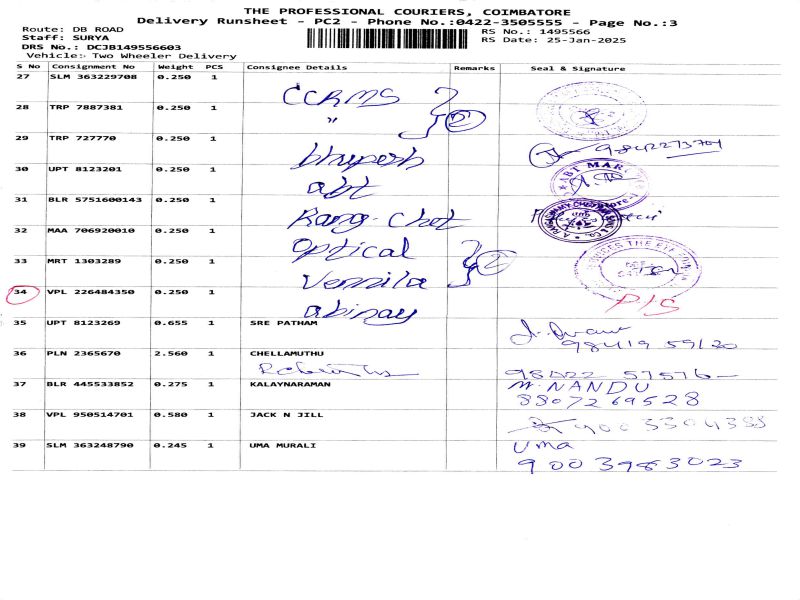 THE PROFESSIONAL COURIERS, COIMBATORE
Delivery Runsheet - PC2 - Phone No.:0422-3505555 - Page No.:3
Route: DB ROAD
RS No.: 1495566
Staff: SURYA
RS Date: 25-Jan-2025
DRS No.: DCJB149556603
Vehicle:- Two Wheeler Delivery
S No Consignment No Weight PCS Consignee Details Remarks Seal & Signature
27 SLM 363229708 0.250 1 CCRMS
28 TRP 7887381 0.250 1 " 2
29 TRP 727770 0.250 1 bhupesh 9842273701
30 UPT 8123201 0.250 1 abt ABT MAR
31 BLR 5751600143 0.250 1 Rang-Chet
32 MAA 706920010 0.250 1 Optical
33 MRT 1303289 0.250 1 Vennila 2
34 VPL 226484350 0.250 1 abinay P/S
35 UPT 8123269 0.655 1 SRE PATHAM
98419 59120
36 PLN 2365670 2.560 1 CHELLAMUTHU
98422 57576
37 BLR 445533852 0.275 1 KALAYNARAMAN M. NANDU
8807269528
38 VPL 950514701 0.580 1 JACK N JILL
39 SLM 363248790 0.245 1 UMA MURALI Uma
9003983023